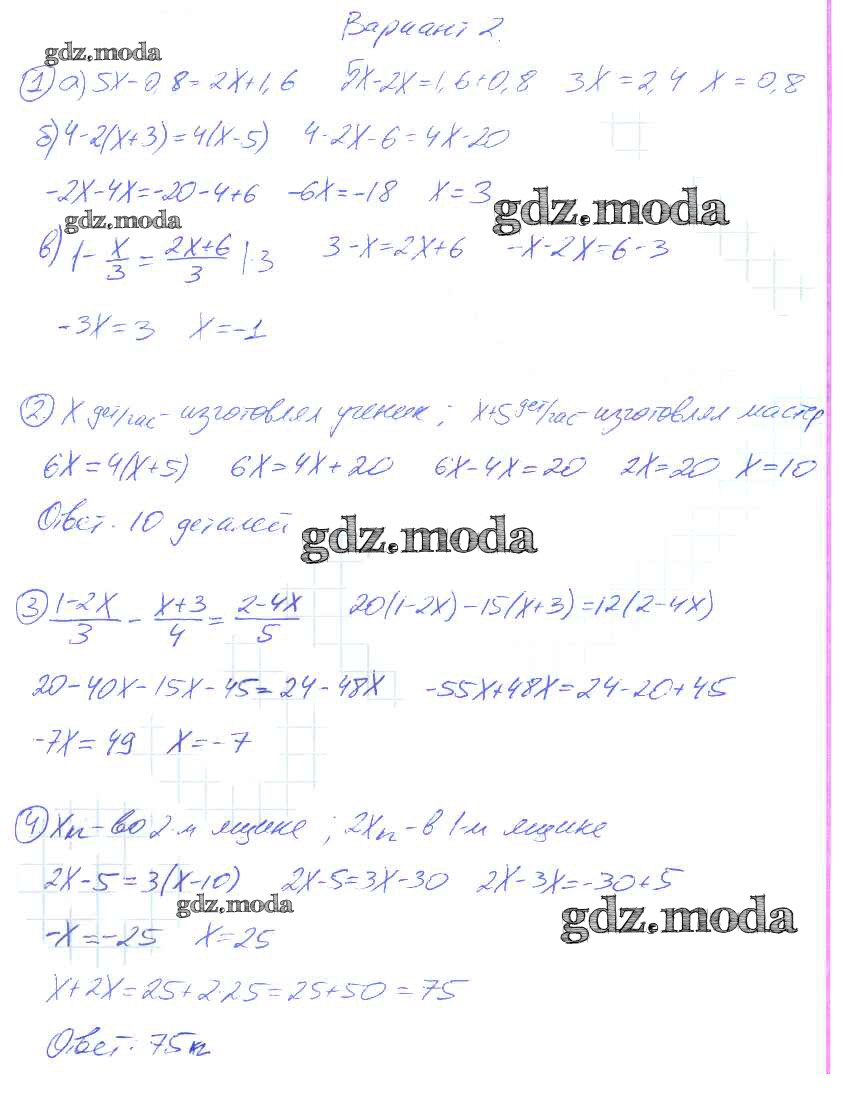 Вариант 2.
gdz.moda
① а) 5x-0,8=2x+1,6 5x-2x=1,6+0,8 3x=2,4 x=0,8
б) 4-2(x+3)=4(x-5) 4-2x-6=4x-20
-2x-4x=-20-4+6 -6x=-18 x=3
gdz.moda
gdz.moda
в) 1-x/3=(2x+6)/3 |·3 3-x=2x+6 -x-2x=6-3
-3x=3 x=-1
② x дет/час-изготовлял ученик; x+5 дет/час-изготовлял мастер
6x=4(x+5) 6x=4x+20 6x-4x=20 2x=20 x=10
Ответ. 10 деталей
gdz.moda
③ (1-2x)/3-(x+3)/4=(2-4x)/5 20(1-2x)-15(x+3)=12(2-4x)
20-40x-15x-45=24-48x -55x+48x=24-20+45
-7x=49 x=-7
④ x - во 2-м ящике; 2x - в 1-м ящике
2x-5=3(x-10) 2x-5=3x-30 2x-3x=-30+5
gdz.moda
gdz.moda
-x=-25 x=25
x+2x=25+2·25=25+50=75
Ответ. 75